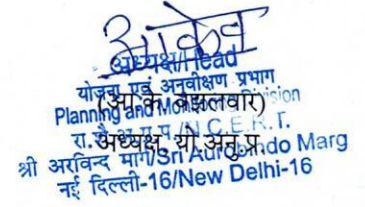 अध्यक्ष/Head
योजना एवं अनुवीक्षण प्रभाग
Planning and Division
(आ.के. वझलवार)
रा.शै.अ.प्र.प./N.C.E.R.T.
अध्यक्ष, यो.अनु.प्र.
श्री अरविन्द मार्ग/Sri Aurobindo Marg
नई दिल्ली-16/New Delhi-16